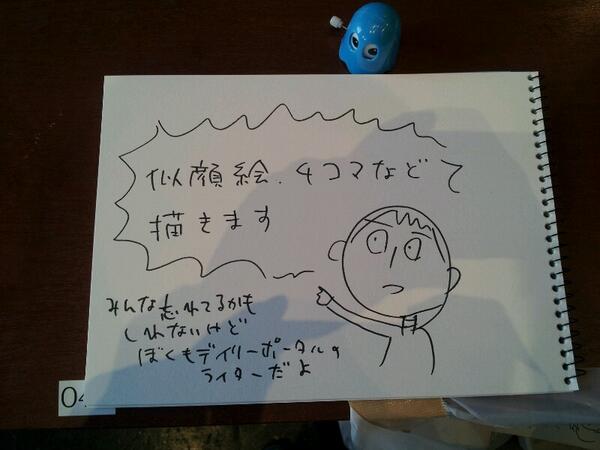 似顔絵、4コマなど
描きます
みんな忘れてるかも
しれないけど
ぼくもデイリーポータルの
ライターだよ
04